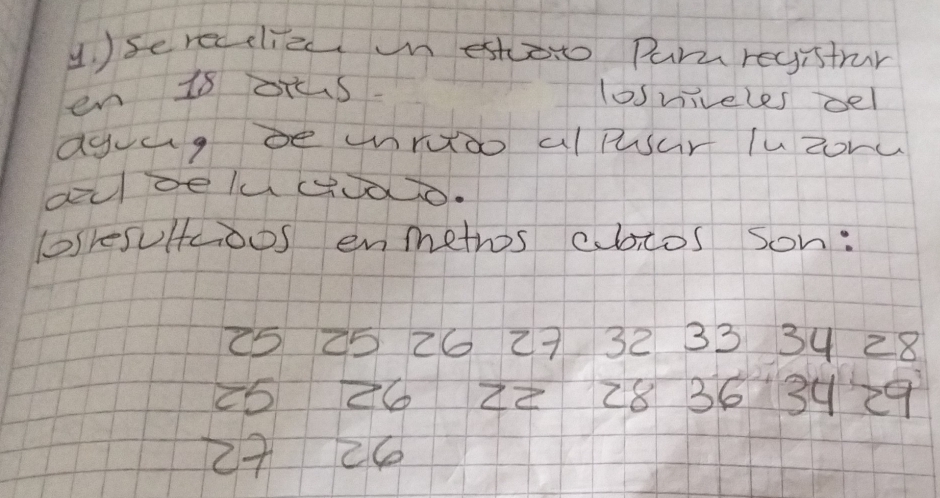 1.) se recelizu un estudio Para registrar
en 18 dias los niveles del
agua, de un rudo al Pasar la zona
azul de la ciudad.
los resultados en metros cubicos son:
25 25 26 27 32 33 34 28
25 26 22 28 36 34 29
27 26